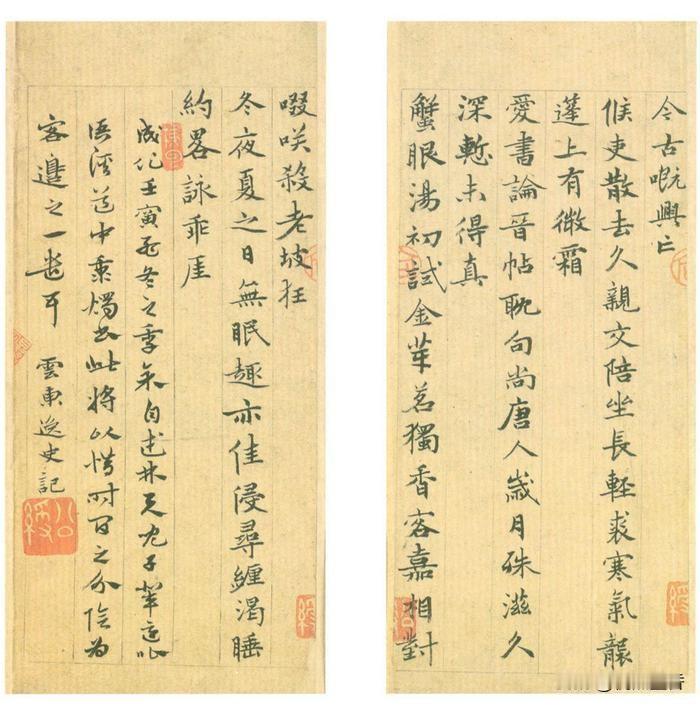 今古嘅興亡
候吏散去久親交陪坐長輕裘寒氣襲
蓬上有微霜
愛書論晉帖耽句尚唐人歲月殊滋久
深慙未得真
蟹眼湯初試金芽茗獨香客嘉相對
啜咲殺老坡狂
冬夜夏之日無眠趣亦佳浸尋纏渴睡
約畧詠乖崖
成化壬寅冬之季自林兄子輩
語溪道中秉燭書此將以惜時百之分陰為
客邊之一耳 雲東逸史記
公綬